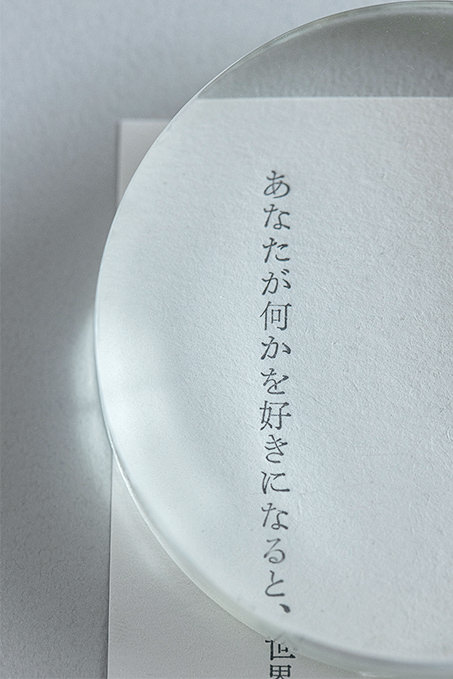 あなたが何かを好きになると、世界